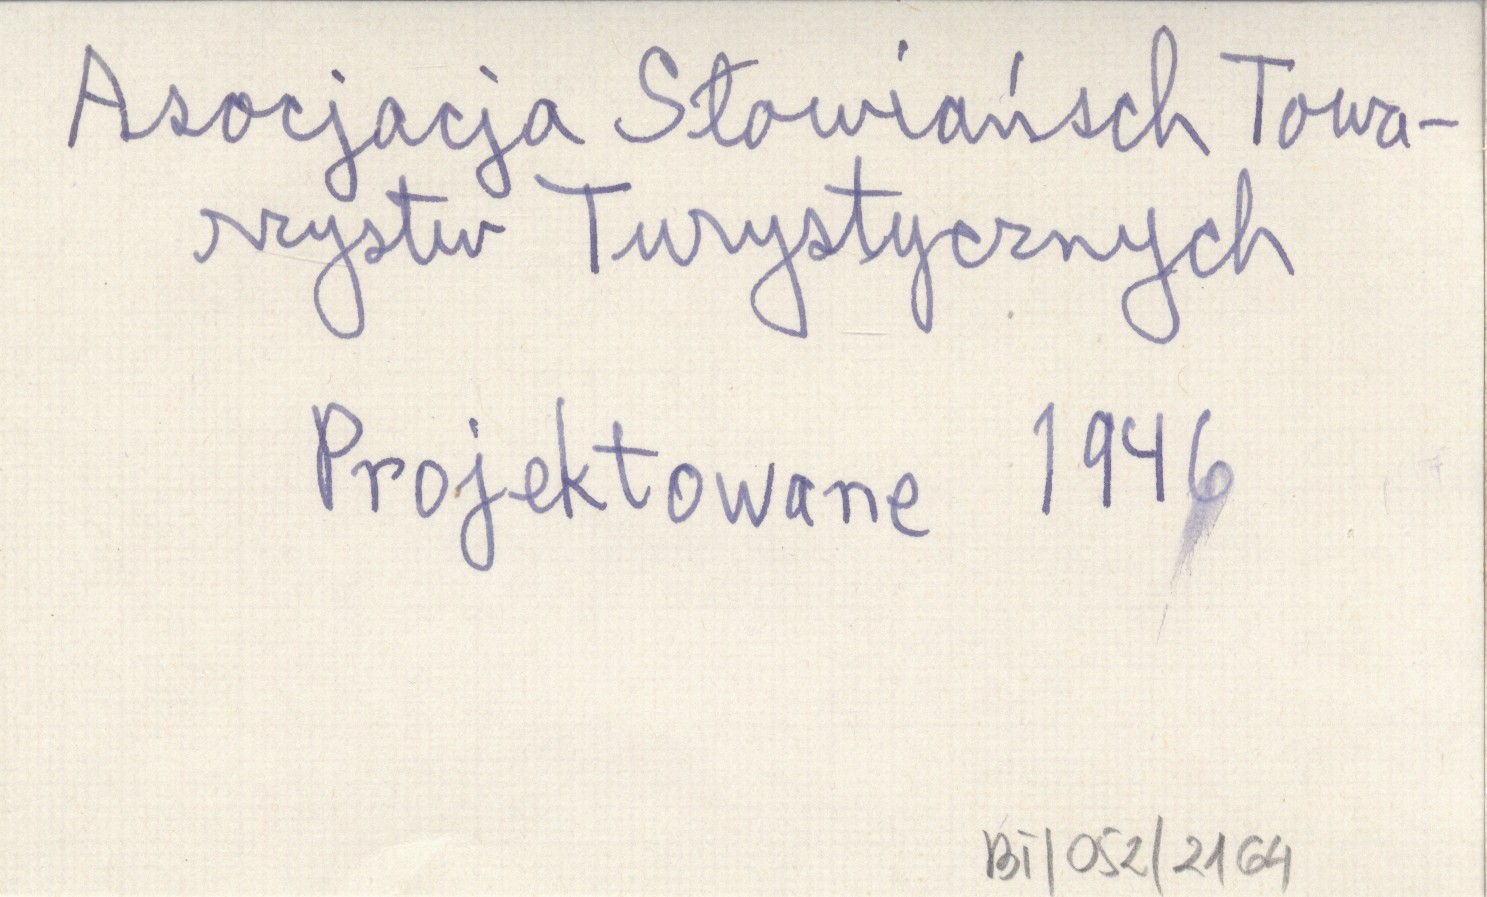 Asocjacja Słowiańsch Towa-
rzystw Turystycznych
Projektowane 1946
BI/052/2164